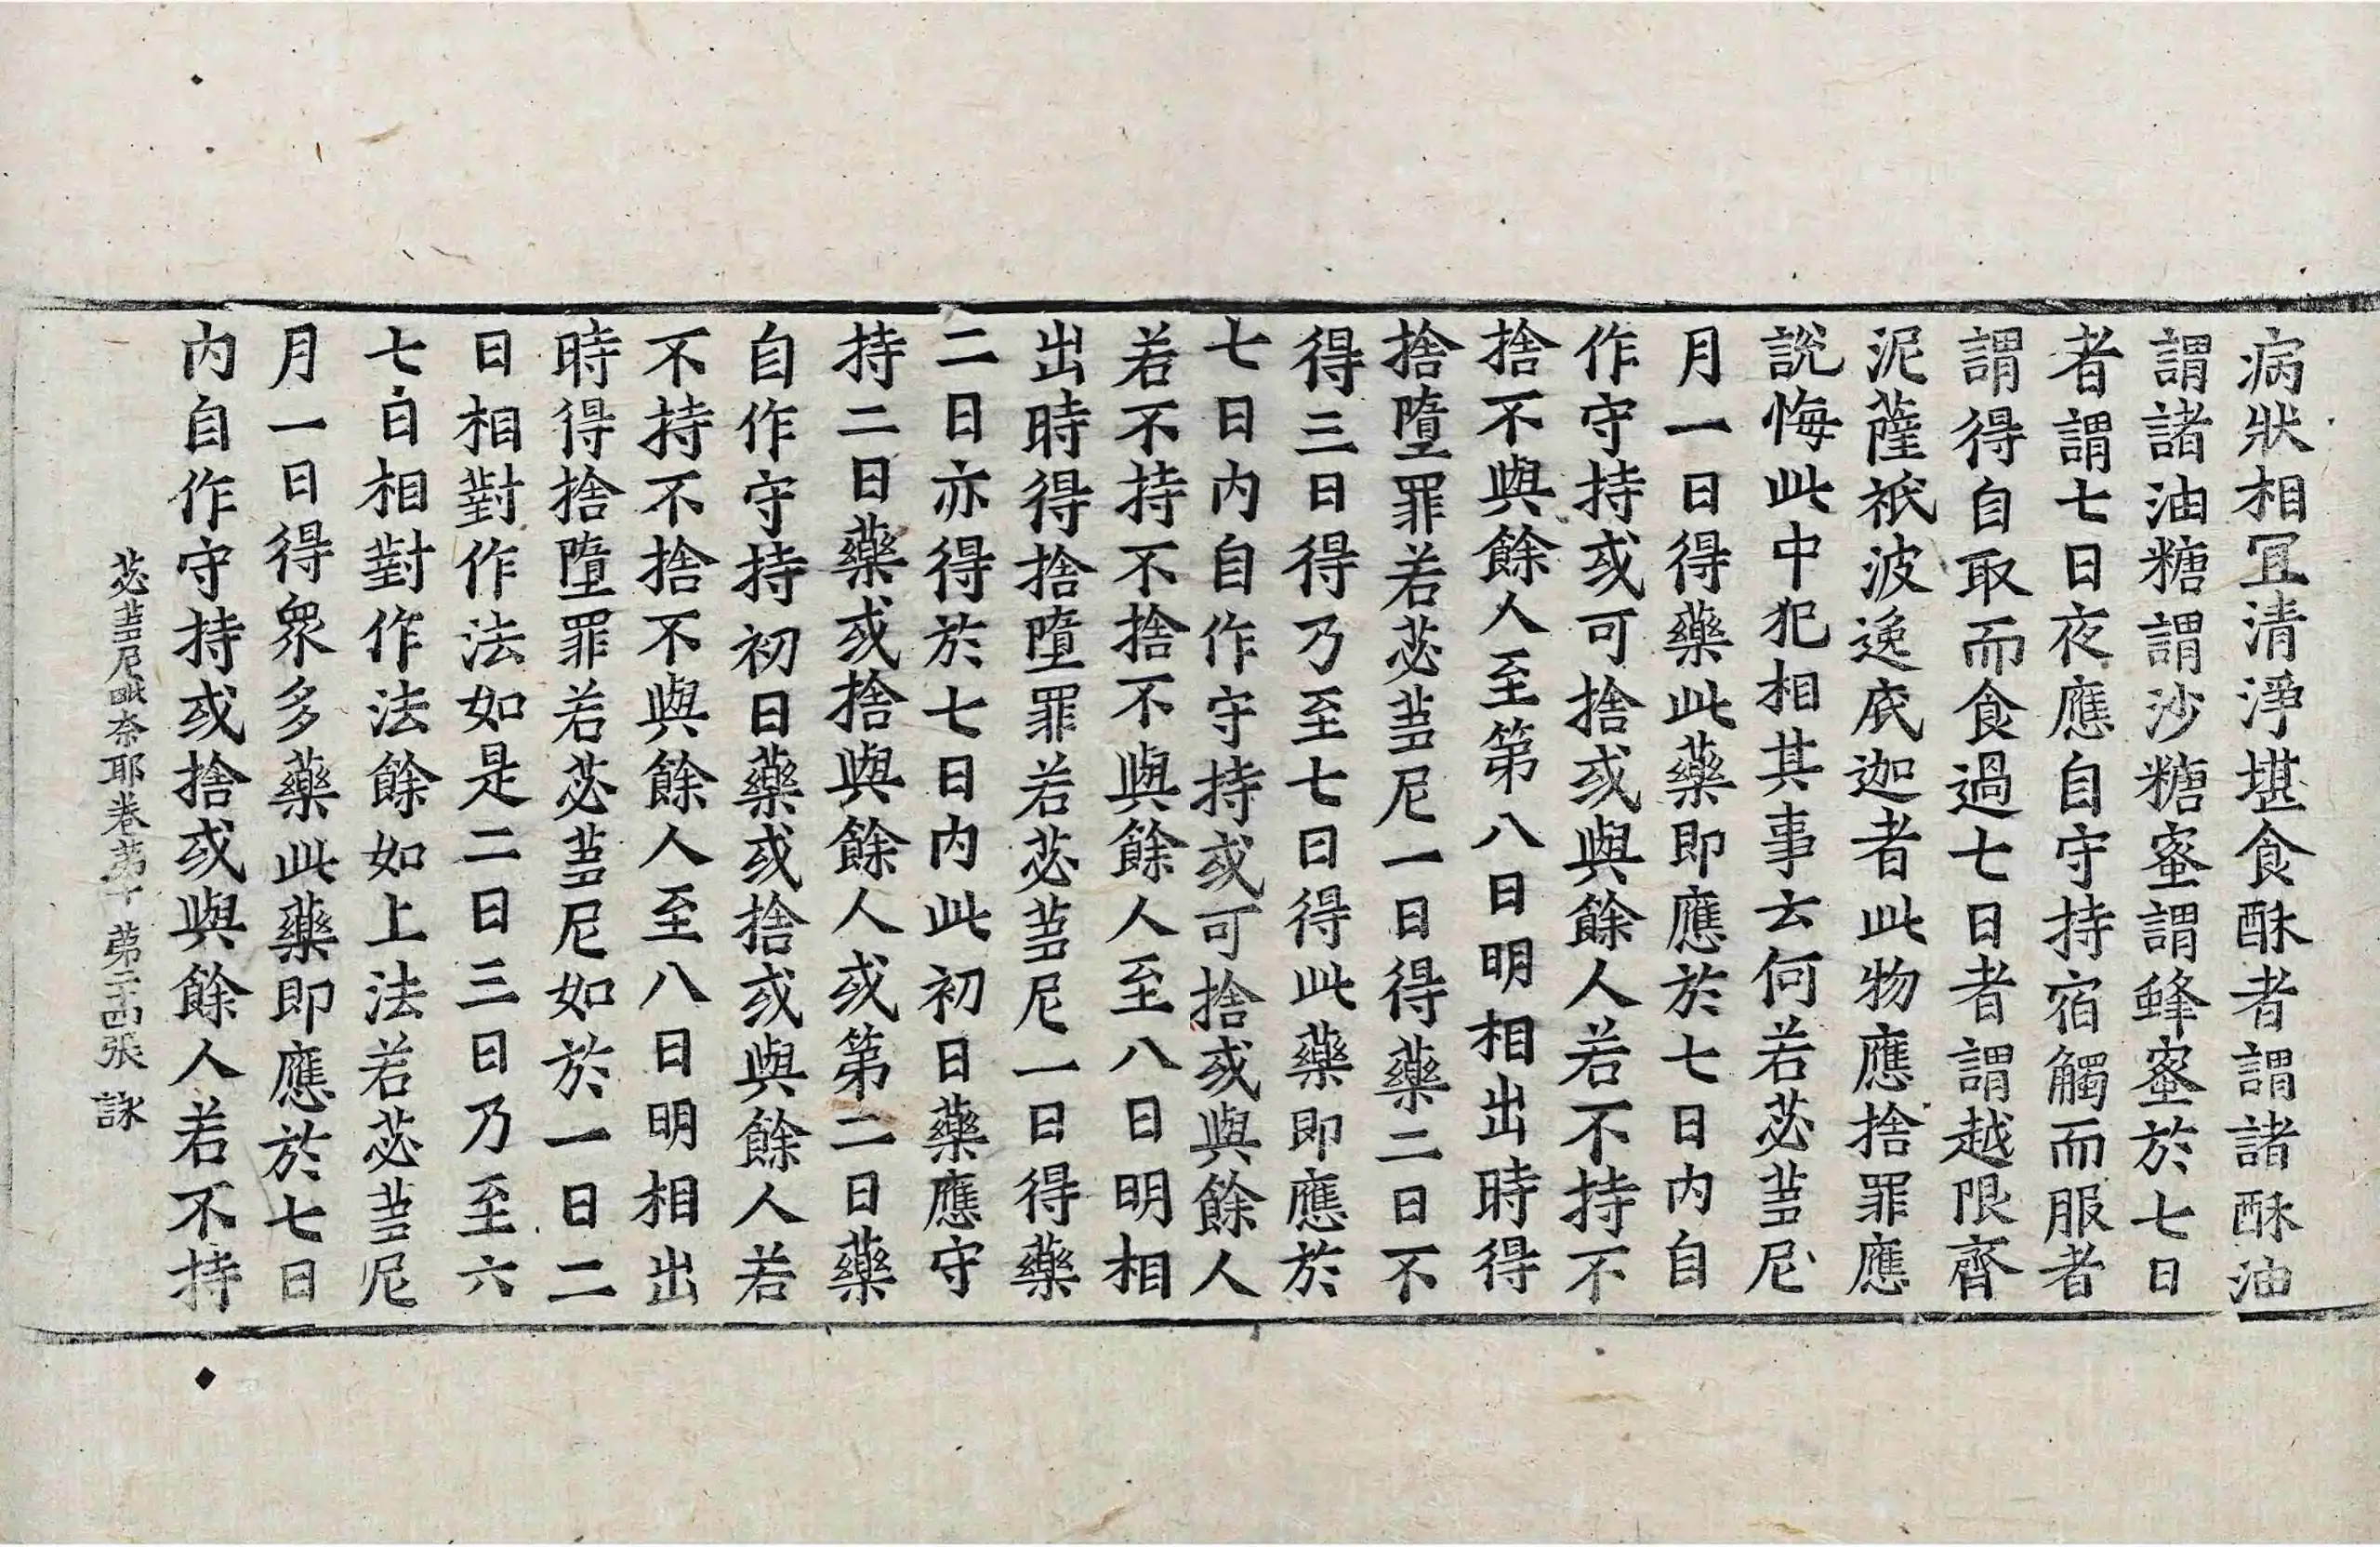 病狀相冝清淨堪食酥者謂諸酥油
謂諸油糖謂沙糖蜜謂蜂蜜於七日
者謂七日夜應自守持宿觸而服者
謂得自取而食過七日者謂越限齊
泥薩祇波逸底迦者此物應捨罪應
說悔此中犯相其事云何若苾芻尼
月一日得藥此藥即應於七日內自
作守持或可捨或與餘人若不持不
捨不與餘人至第八日明相出時得
捨墮罪若苾芻尼一日得藥二日不
得三日得乃至七日得此藥即應於
七日內自作守持或可捨或與餘人
若不持不捨不與餘人至八日明相
出時得捨墮罪若苾芻尼一日得藥
二日亦得於七日內此初日藥應守
持二日藥或捨與餘人或第二日藥
自作守持初日藥或捨或與餘人若
不持不捨不與餘人至八日明相出
時得捨墮罪若苾芻尼如於一日二
日相對作法如是二日三日乃至六
七日相對作法餘如上法若苾芻尼
月一日得眾多藥此藥即應於七日
內自作守持或捨或與餘人若不持
苾芻尼毗奈耶卷第十 第二十四張 詠